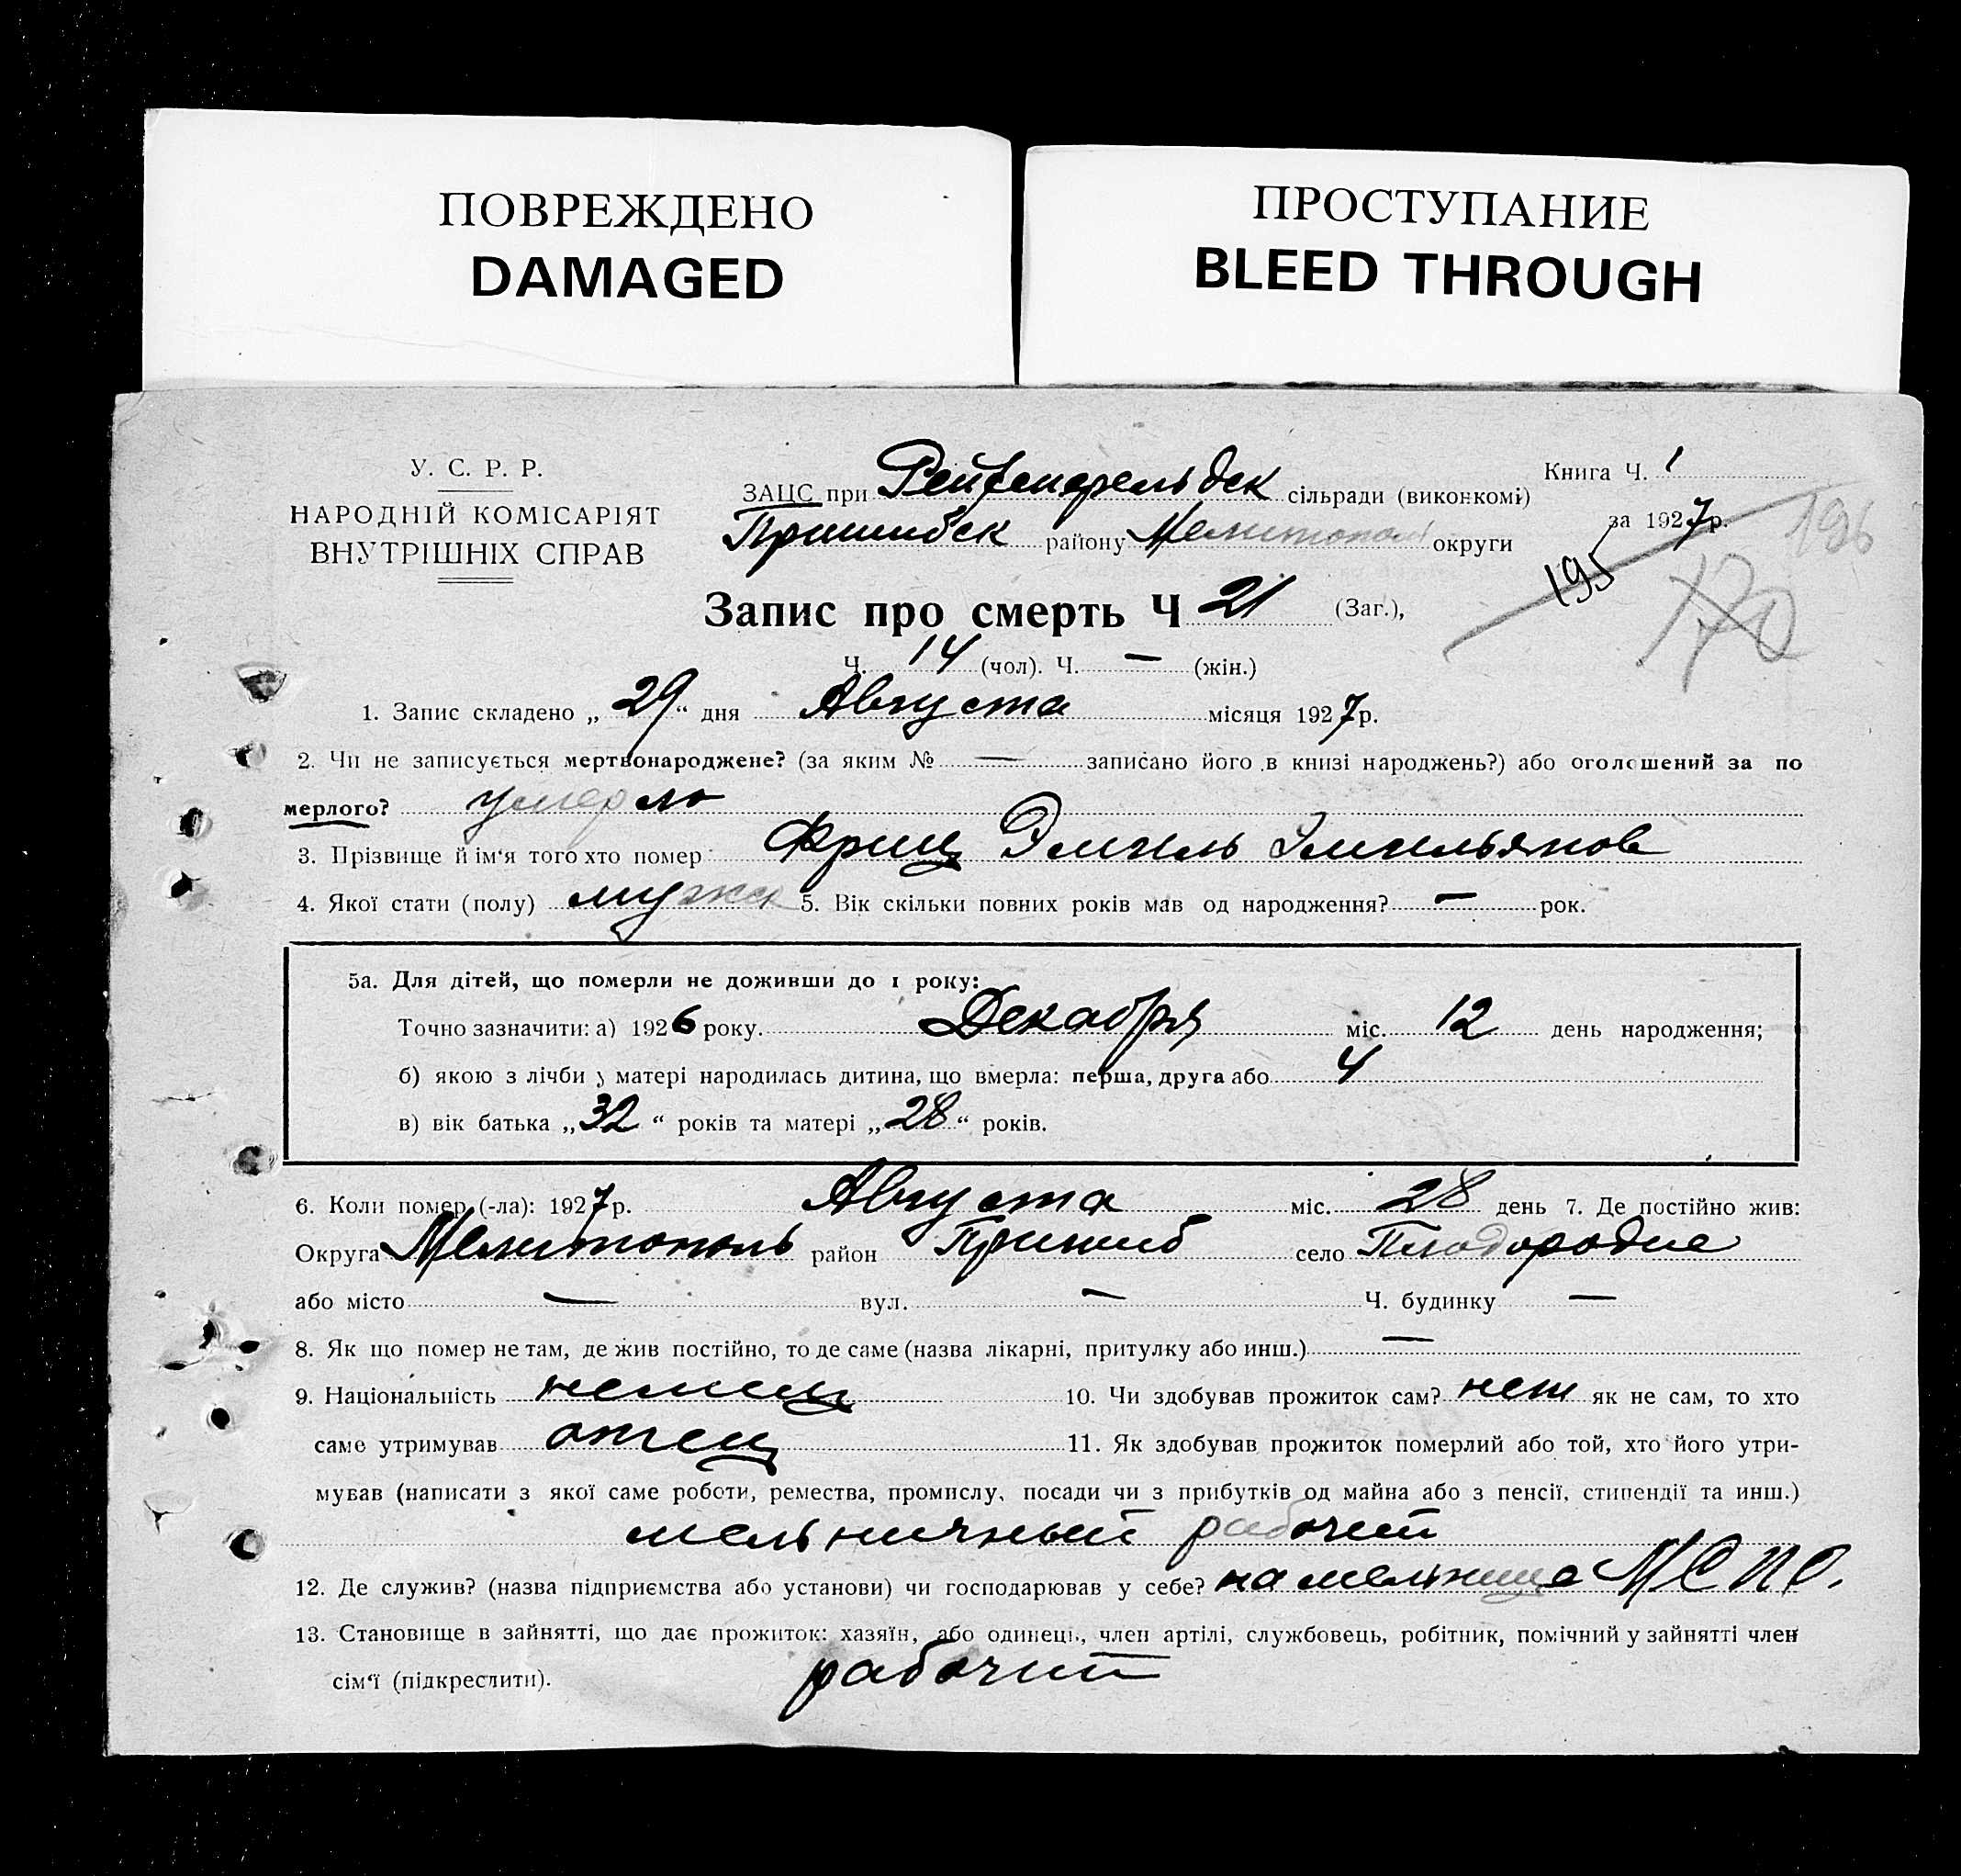 ПОВРЕЖДЕНО
DAMAGED
ПРОСТУПАНИЕ
BLEED THROUGH
У. С. Р. Р.
НАРОДНІЙ КОМІСАРІЯТ
ВНУТРІШНІХ СПРАВ
ЗАЦС при Рейхенфельдск сільради (виконкомі)
Пришибск району Мелитопол округи
Книга Ч. 1
за 1927р.
195
196
170
Запис про смерть Ч 21 (Заг.),
Ч. 14 (чол). Ч. — (жін.)
1. Запис складено „ 29 “ дня Августа місяця 1927р.
2. Чи не записується мертвонароджене? (за яким № — записано його в книзі народжень?) або оголошений за по
мерлого? умерло
3. Прізвище й ім‘я того хто помер Фриц Эмиль Эмильянов
4. Якої стати (полу) мужск 5. Вік скільки повних років мав од народження? — рок.
5а. Для дітей, що померли не доживши до 1 року:
Точно зазначити: а) 1926 року. Декабря міс. 12 день народження;
б) якою з лічби у матері народилась дитина, що вмерла: перша, друга або 4
в) вік батька „32“ років та матері „28“ років.
6. Коли помер (-ла): 1927р. Августа міс. 28 день 7. Де постійно жив:
Округа Мелитополь район Пришиб село Плодородие
або місто — вул. — Ч. будинку —
8. Як що помер не там, де жив постійно, то де саме (назва лікарні, притулку або инш.) —
9. Національність немец 10. Чи здобував прожиток сам? нет як не сам, то хто
саме утримував отец 11. Як здобував прожиток померлий або той, хто його утри-
мував (написати з якої саме роботи, ремества, промислу, посади чи з прибутків од майна або з пенсії, стипендії та инш.)
мельничный рабочий
12. Де служив? (назва підприємства або установи) чи господарював у себе? на мельнице МСПО.
13. Становище в зайнятті, що дає прожиток: хазяїн, або одинець, член артілі, службовець, робітник, помічний у зайнятті член
сім‘ї (підкреслити). рабочий